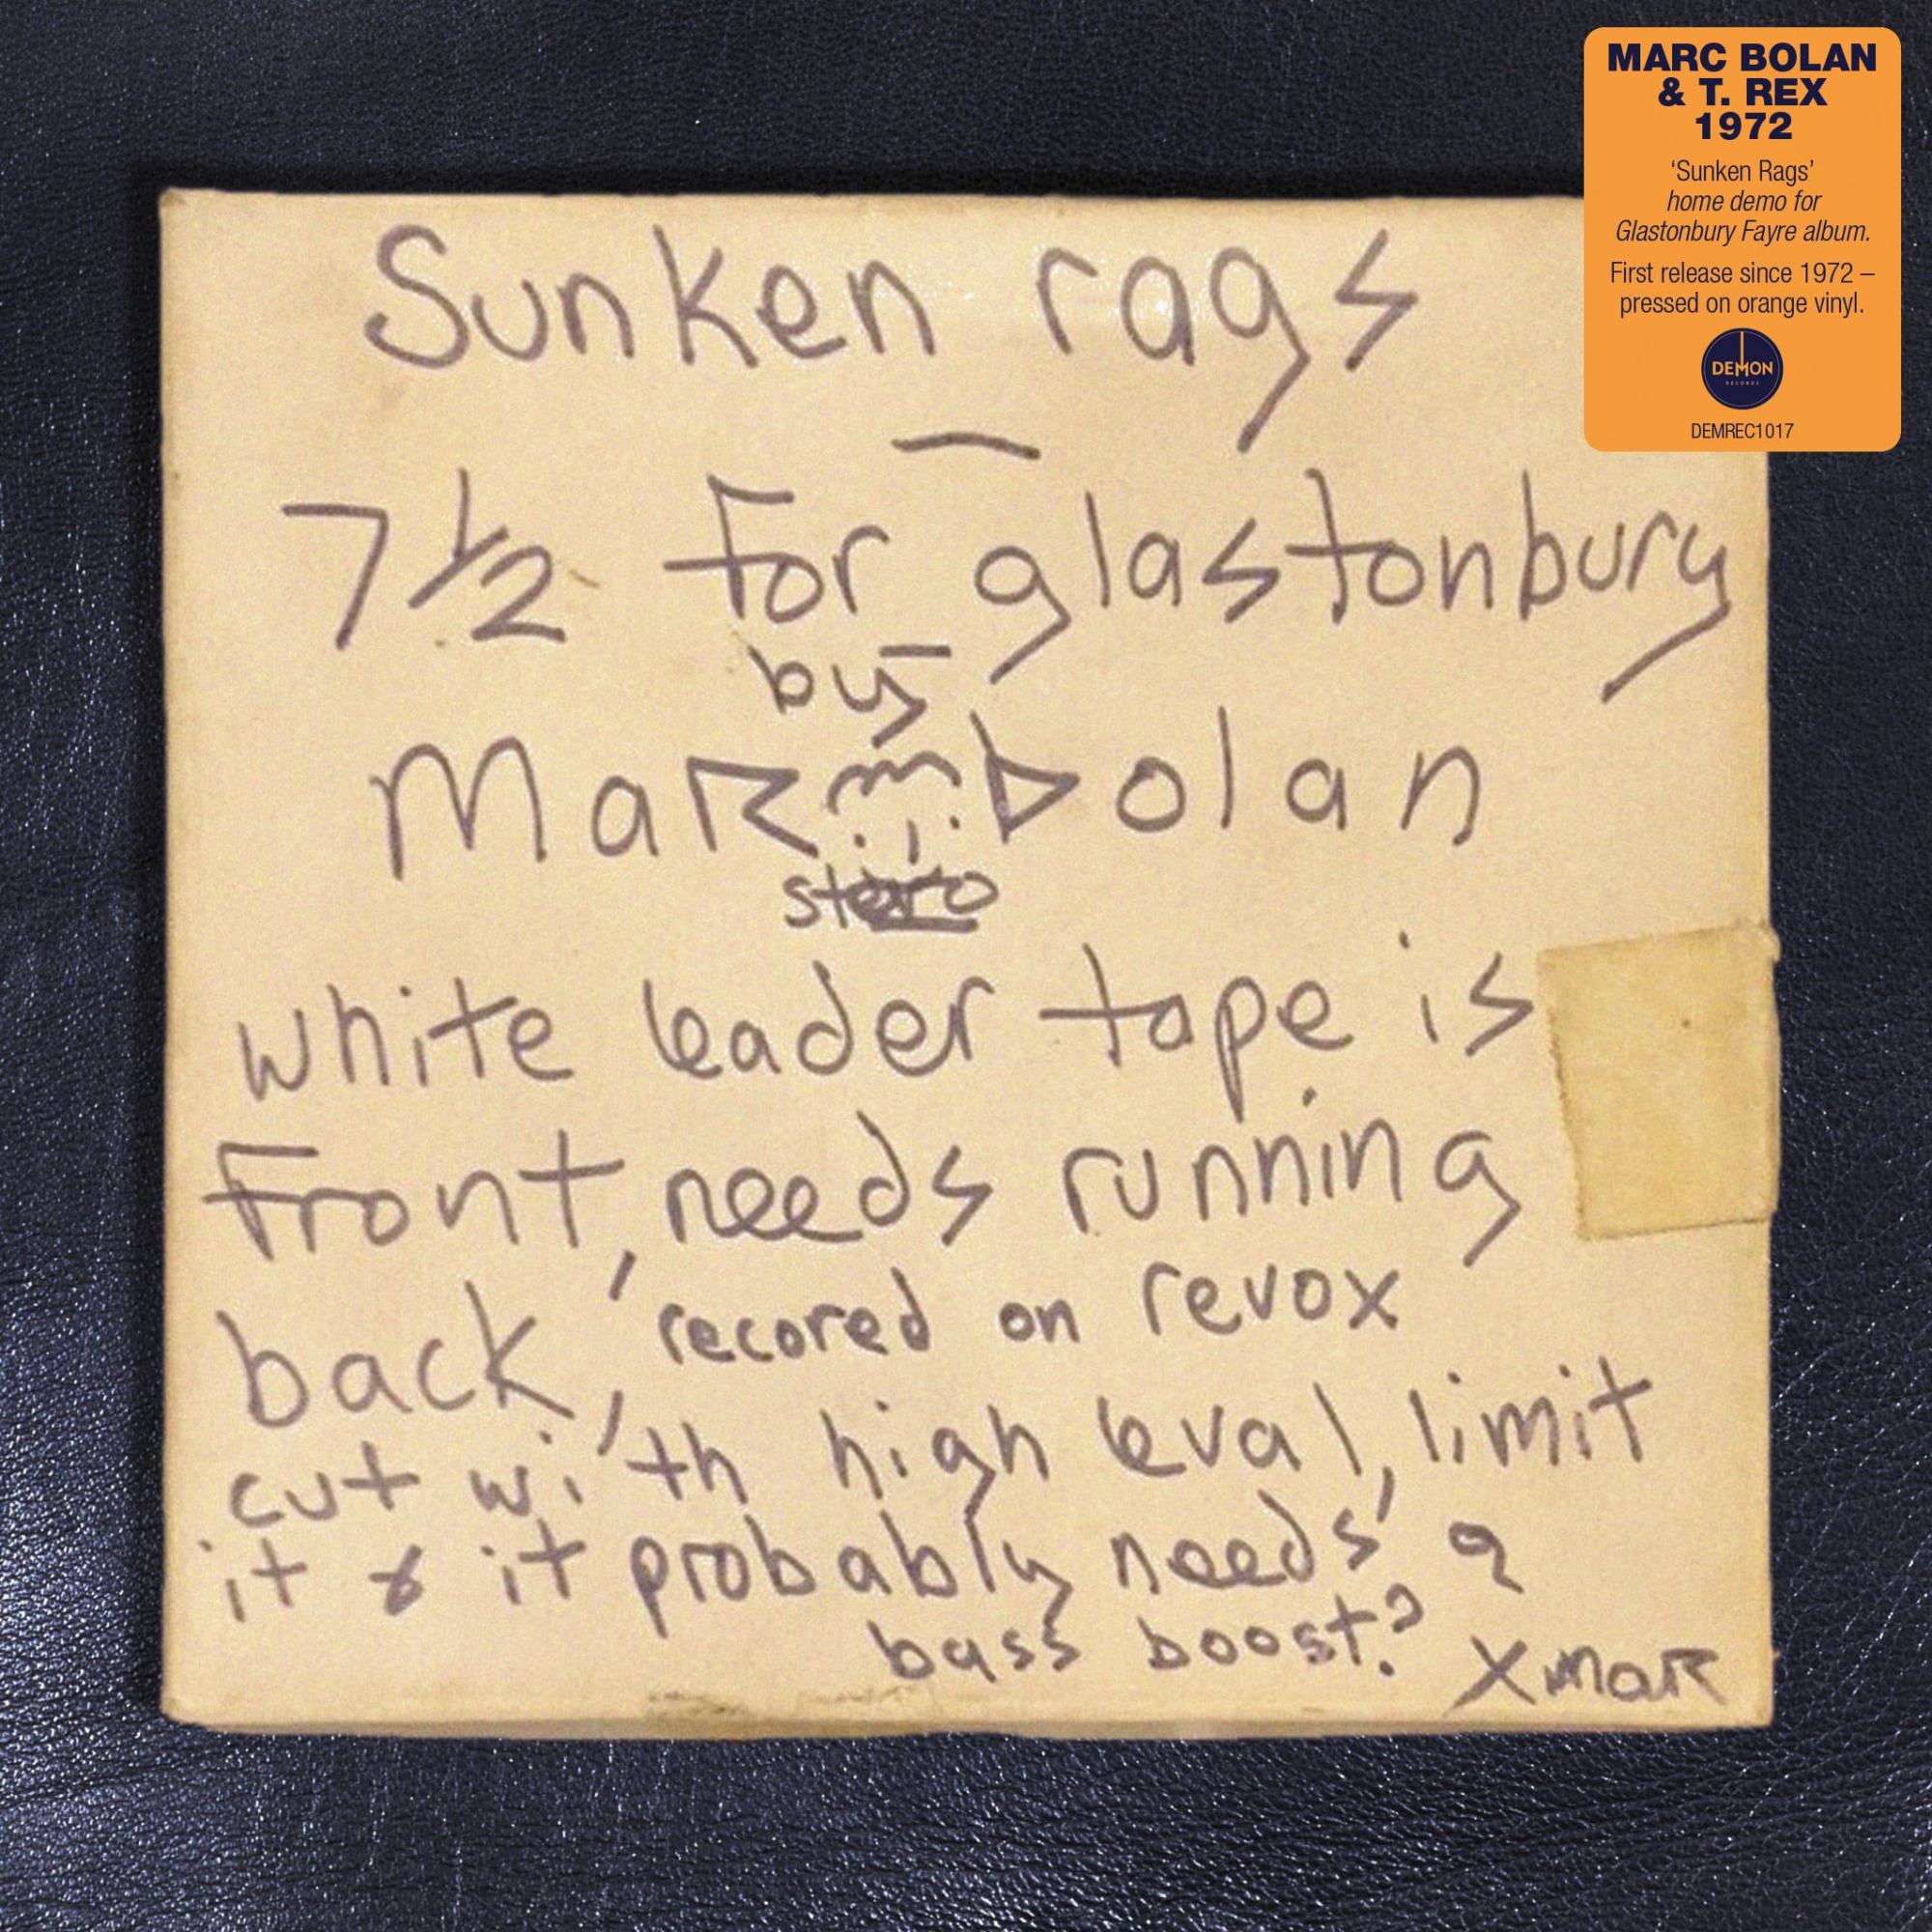 MARC BOLAN
& T. REX
1972
‘Sunken Rags’
home demo for
Glastonbury Fayre album.
First release since 1972 –
pressed on orange vinyl.
DEMON
RECORDS
DEMREC1017
Sunken rags
7½ For glastonbury
by
Mar bolan
white leader tape is
Front, needs running
back, recored on revox
cut with high leval, limit
it & it probably needs a
bass boost?
X mar